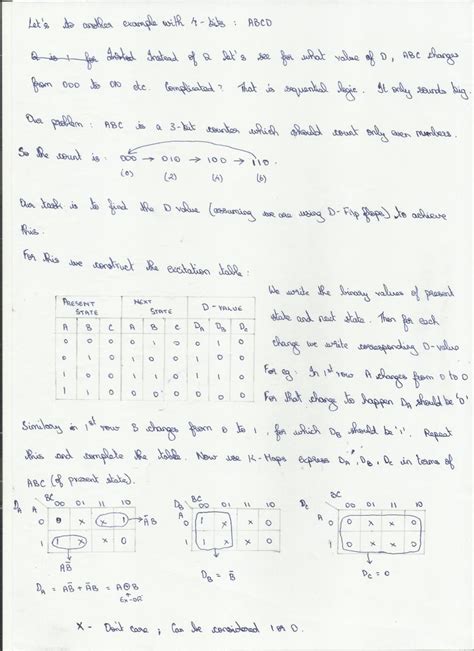 Let's do another example with 4-bits : ABCD
Instead of Q let's see for what value of D, ABC changes
from 000 to 010 etc. Complicated? That is sequential logic. It only sounds big.
Our problem : ABC is a 3-bit counter which should count only even numbers.
So the count is : 000 → 010 → 100 → 110
(0) (2) (4) (6)
Our task is to find the D value (assuming we are using D-Flip flops) to achieve
this.
For this we construct the excitation table :
PRESENT STATE NEXT STATE D-VALUE
A B C A B C DA DB DC
0 0 0 0 1 0 0 1 0
0 1 0 1 0 0 1 0 0
1 0 0 1 1 0 1 1 0
1 1 0 0 0 0 0 0 0
We write the binary values of present
state and next state. Then for each
change we write corresponding D-value
For eg: In 1st row A changes from 0 to 0
For that change to happen DA should be '0'
Similarly in 1st row B changes from 0 to 1, for which DB should be '1'. Repeat
this and complete the table. Now use K-Maps express DA, DB, DC in terms of
ABC (of present state).
DA BC 00 01 11 10
A 0 0 x x 1 ĀB
1 1 x x 0
AB̄
DA = AB̄ + ĀB = A⊕B
Ex-OR
DB BC 00 01 11 10
A 0 1 x x 0
1 1 x x 0
DB = B̄
DC BC 00 01 11 10
A 0 0 x x 0
1 0 x x 0
DC = 0
X - Don't care ; Can be considered 1 or 0.